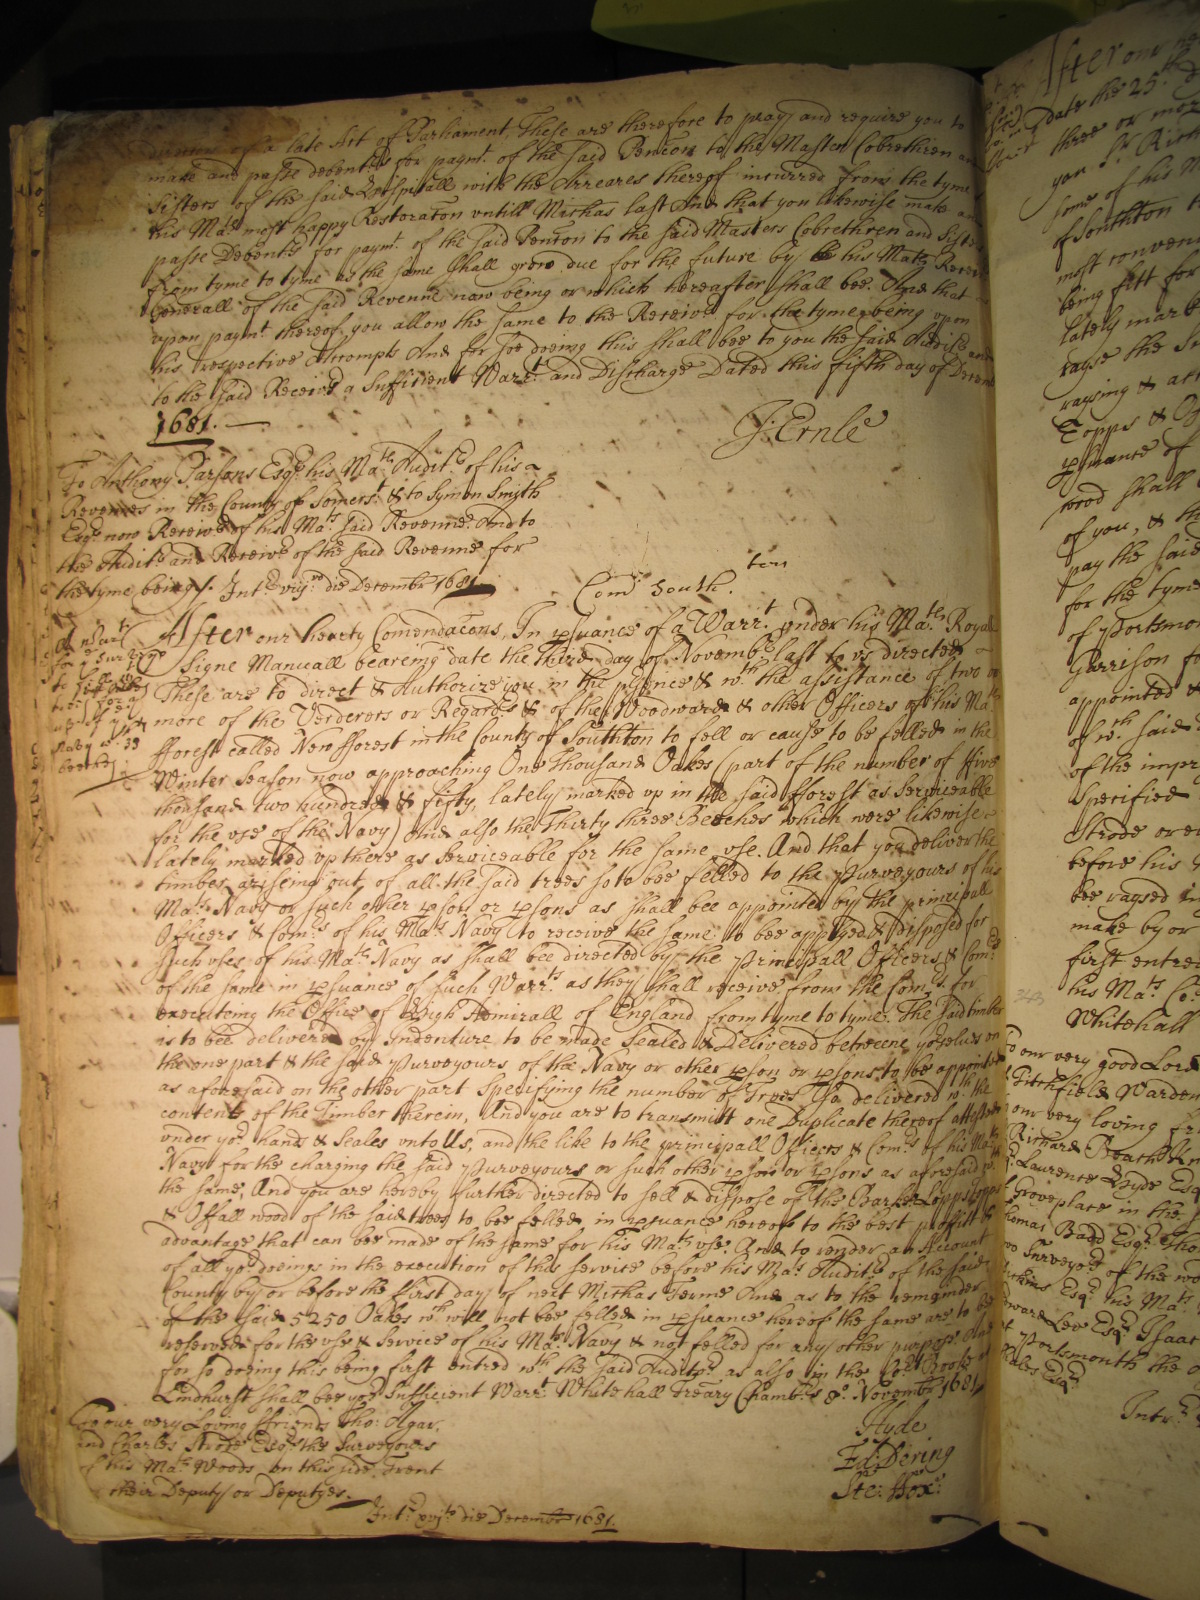 direction of a late Act of Parliament These are therefore to pray and require you to
make and passe debentrs for paymt. of the said Pencon to the Master Cobrethren and
Sisters of the said Hospitall with the Arreares thereof incurred from the tyme
his Mats most happy Restoraton vntill Michas last And that you likewise make and
passe Debentrs for paymt. of the said Pencon to the said Masters Cobrethren and Sisters
from tyme to tyme as the same shall grow due for the future by his Mats Receivr
Generall of the said Revenue now being or which hereafter shall bee. And that
vpon paymt. thereof you allow the same to the Receivr for the tyme being vpon
his respective Accompts And for soe doeing this shall bee to you the said Auditr and
to the said Receivr a Sufficient Warrt. and Discharge Dated this fifth day of Decem
1681.
J: Ernle
To Anthony Parsons Esqr. his Mats Auditr of his
Revenues in the County of Somerst. & to Symon Smith
Esqr now Receivr of his Mats. said Revenue. And to
the Auditr and Receivr of the said Revenue for
the tyme being. Intr viijno. die Decembr 1681.
Com South.ton
After our hearty Comendacons, In pursuance of a Warrt. vnder his Mats. Royall
Signe Manuall beareing date the third day of Novembr last to vs directed
These are to direct & Authorize you in the psence & wth. the assistance of two or
more of the Verderors or Regardrs & of the Woodward & other Officers of his Mats
fforest called New fforest in the County of Southton to fell or cause to be felled in the
Winter Season now approaching One thousand Oakes (part of the number of ffive
thousand two hundred & fifty, lately marked vp in the said fforest as serviceable
for the vse of the Navy) And also the Thirty three Beeches which were likewise
lately marked vp there as serviceable for the same vse. And that you deliver the
timber ariseing out of all the said trees so to bee felled to the Purveyours of his
Mats Navy or such other pson or psons as shall bee appointed by the principall
Officers & Comrs of his Mats Navy to receive the same to bee applyed & disposed for
such vses of his Mats Navy as shall bee directed by the Principall Officers & Comrs
of the same in psuance of such Warrts. as they shall receive from the Comrs. for
executeing the Office of High Admirall of England from tyme to tyme. The said timber
is to bee delivered by Indenture to be made Sealed & Delivered betweene yorselves on
the one part & the said Purveyours of the Navy or other pson or psons to be appointed
as aforesaid on the other part Specifying the number of Trees so delivered wth. the
contents of the Timber therein, And you are to transmitt one Duplicate thereof attested
vnder yor. hands & Seales vnto Us, and the like to the principall Officers & Comrs. of his Mats
Navy for the charging the said Purveyours or such other pson or psons as aforesaid wth.
the same, And you are hereby further directed to sell & dispose of the Barke Lopps Topps
& Offall wood of the said trees to bee felled, in psuance hereof to the best proffitt &
advantage that can bee made of the same for his Mats. vse. And to render an Account
of all yor. doeings in the execution of this service before his Mats. Auditr. of the said
County by or before the first day of next Michas Terme And as to the remainder
of the said 5250 Oakes wch. will not bee felled in psuance hereof the same are to be
reserved for the vse & service of his Mats. Navy & not felled for any other purpose And
for so doeing this being first entred wth the said Auditor. as also in the Cot Booke at
Lindhurst shall bee yor. Sufficient Warrt. Whitehall Treary Chambrs. 8o. Novembr 1681.
Hyde
Ed: Dering
Ste: ffox:
To our very Loving ffriends Tho: Agar,
and Charles Strode Esqrs. the Surveyours
of his Mats. Woods on this side Trent
their Deputy or Deputyes.
Intr. xvjto die Decembr 1681.
After our
date the 25.th
three or mor
you
some of his M
of Southton
most conveni
being fitt for
lately mark
rayse the
raysing &
Topps &
psuance of
wood shall
of you, & th
pay the said
for the tyme
of Portsmo
Garrison fo
appointed &
of wch. said
of the impr
specified
Strode or
before his
bee raysed
make by or
first entred
his Mats. Co
Whitehall
our very good Lord
Titchfield Warden
our very loving fr
Richard
Laurence Hyde Esq
Grove place in the
Thomas Badd Esqr. Tho
Surveyor of the wo
Esqr his Mats.
Edward Lee Esqr Isaac
Portsmouth the
Esqr
Intr.